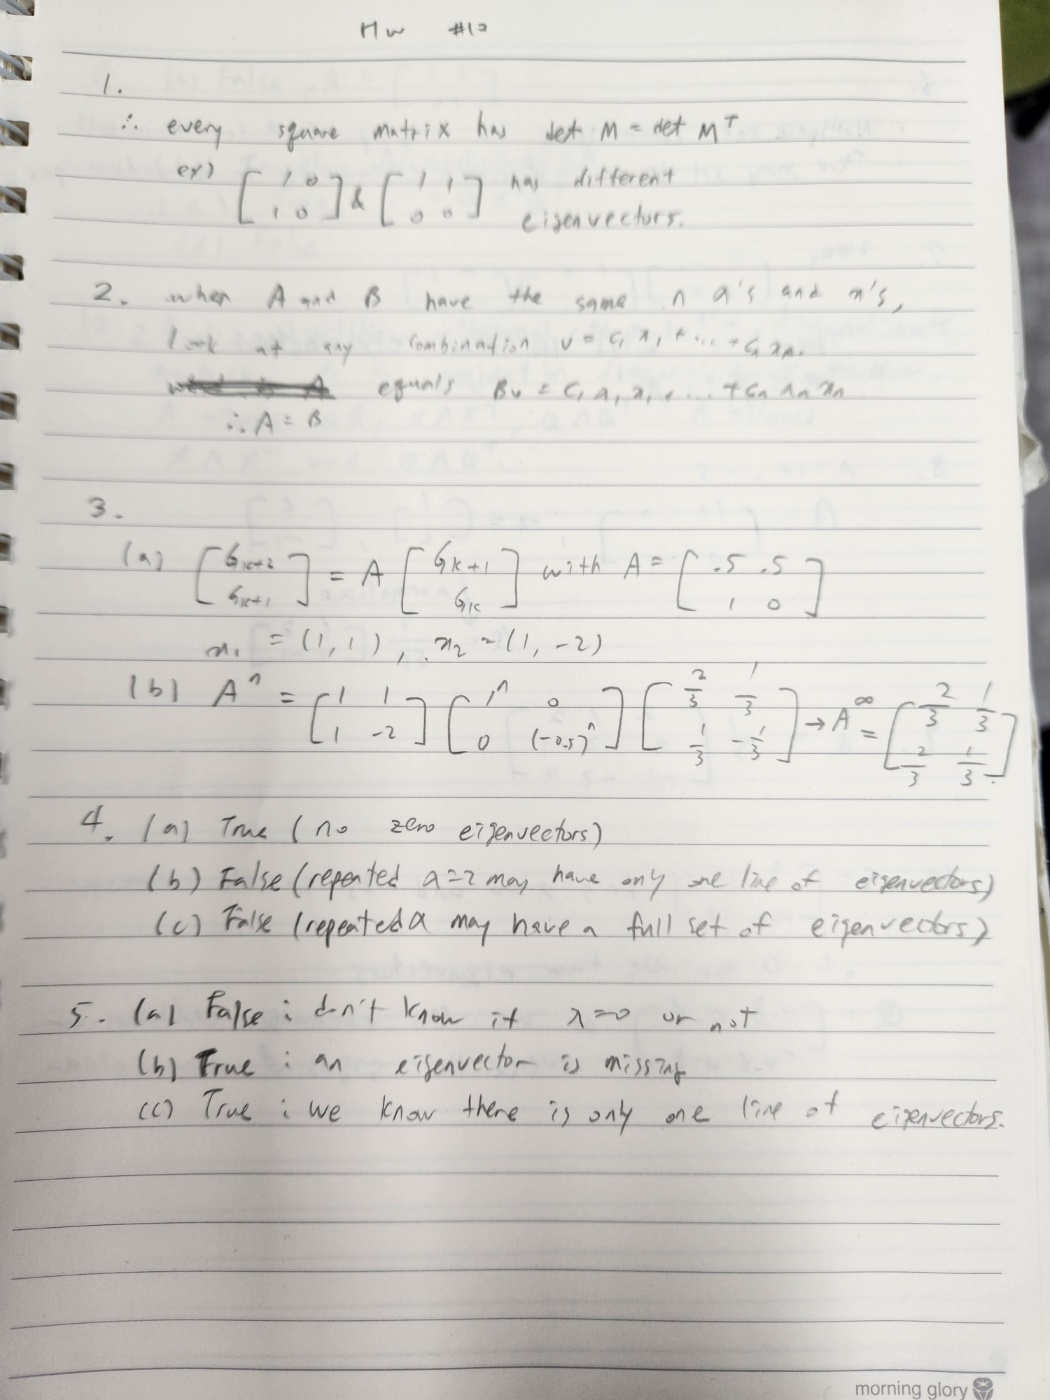 HW #10
1.
∴ every square matrix has det M = det Mᵀ
ex) [1 0; 1 0] & [1 1; 0 0] has different
eigenvectors.
2. when A and B have the same n a's and x's,
look at any combination v = c₁x₁ + ... + cₙxₙ.
equals Bv = c₁a₁x₁ + ... + cₙaₙxₙ
∴ A = B
3.
(a) [Gk+2; Gk+1] = A [Gk+1; Gk] with A = [.5 .5; 1 0]
x₁ = (1, 1), x₂ = (1, -2)
(b) Aⁿ = [1 1; 1 -2] [1ⁿ 0; 0 (-0.5)ⁿ] [2/3 1/3; 1/3 -1/3] → A^∞ = [2/3 1/3; 2/3 1/3]
4. (a) True (no zero eigenvectors)
(b) False (repeated a=2 may have only one line of eigenvectors)
(c) False (repeated a may have a full set of eigenvectors)
5. (a) False : don't know if λ=0 or not
(b) True : an eigenvector is missing
(c) True : we know there is only one line of eigenvectors.
morning glory